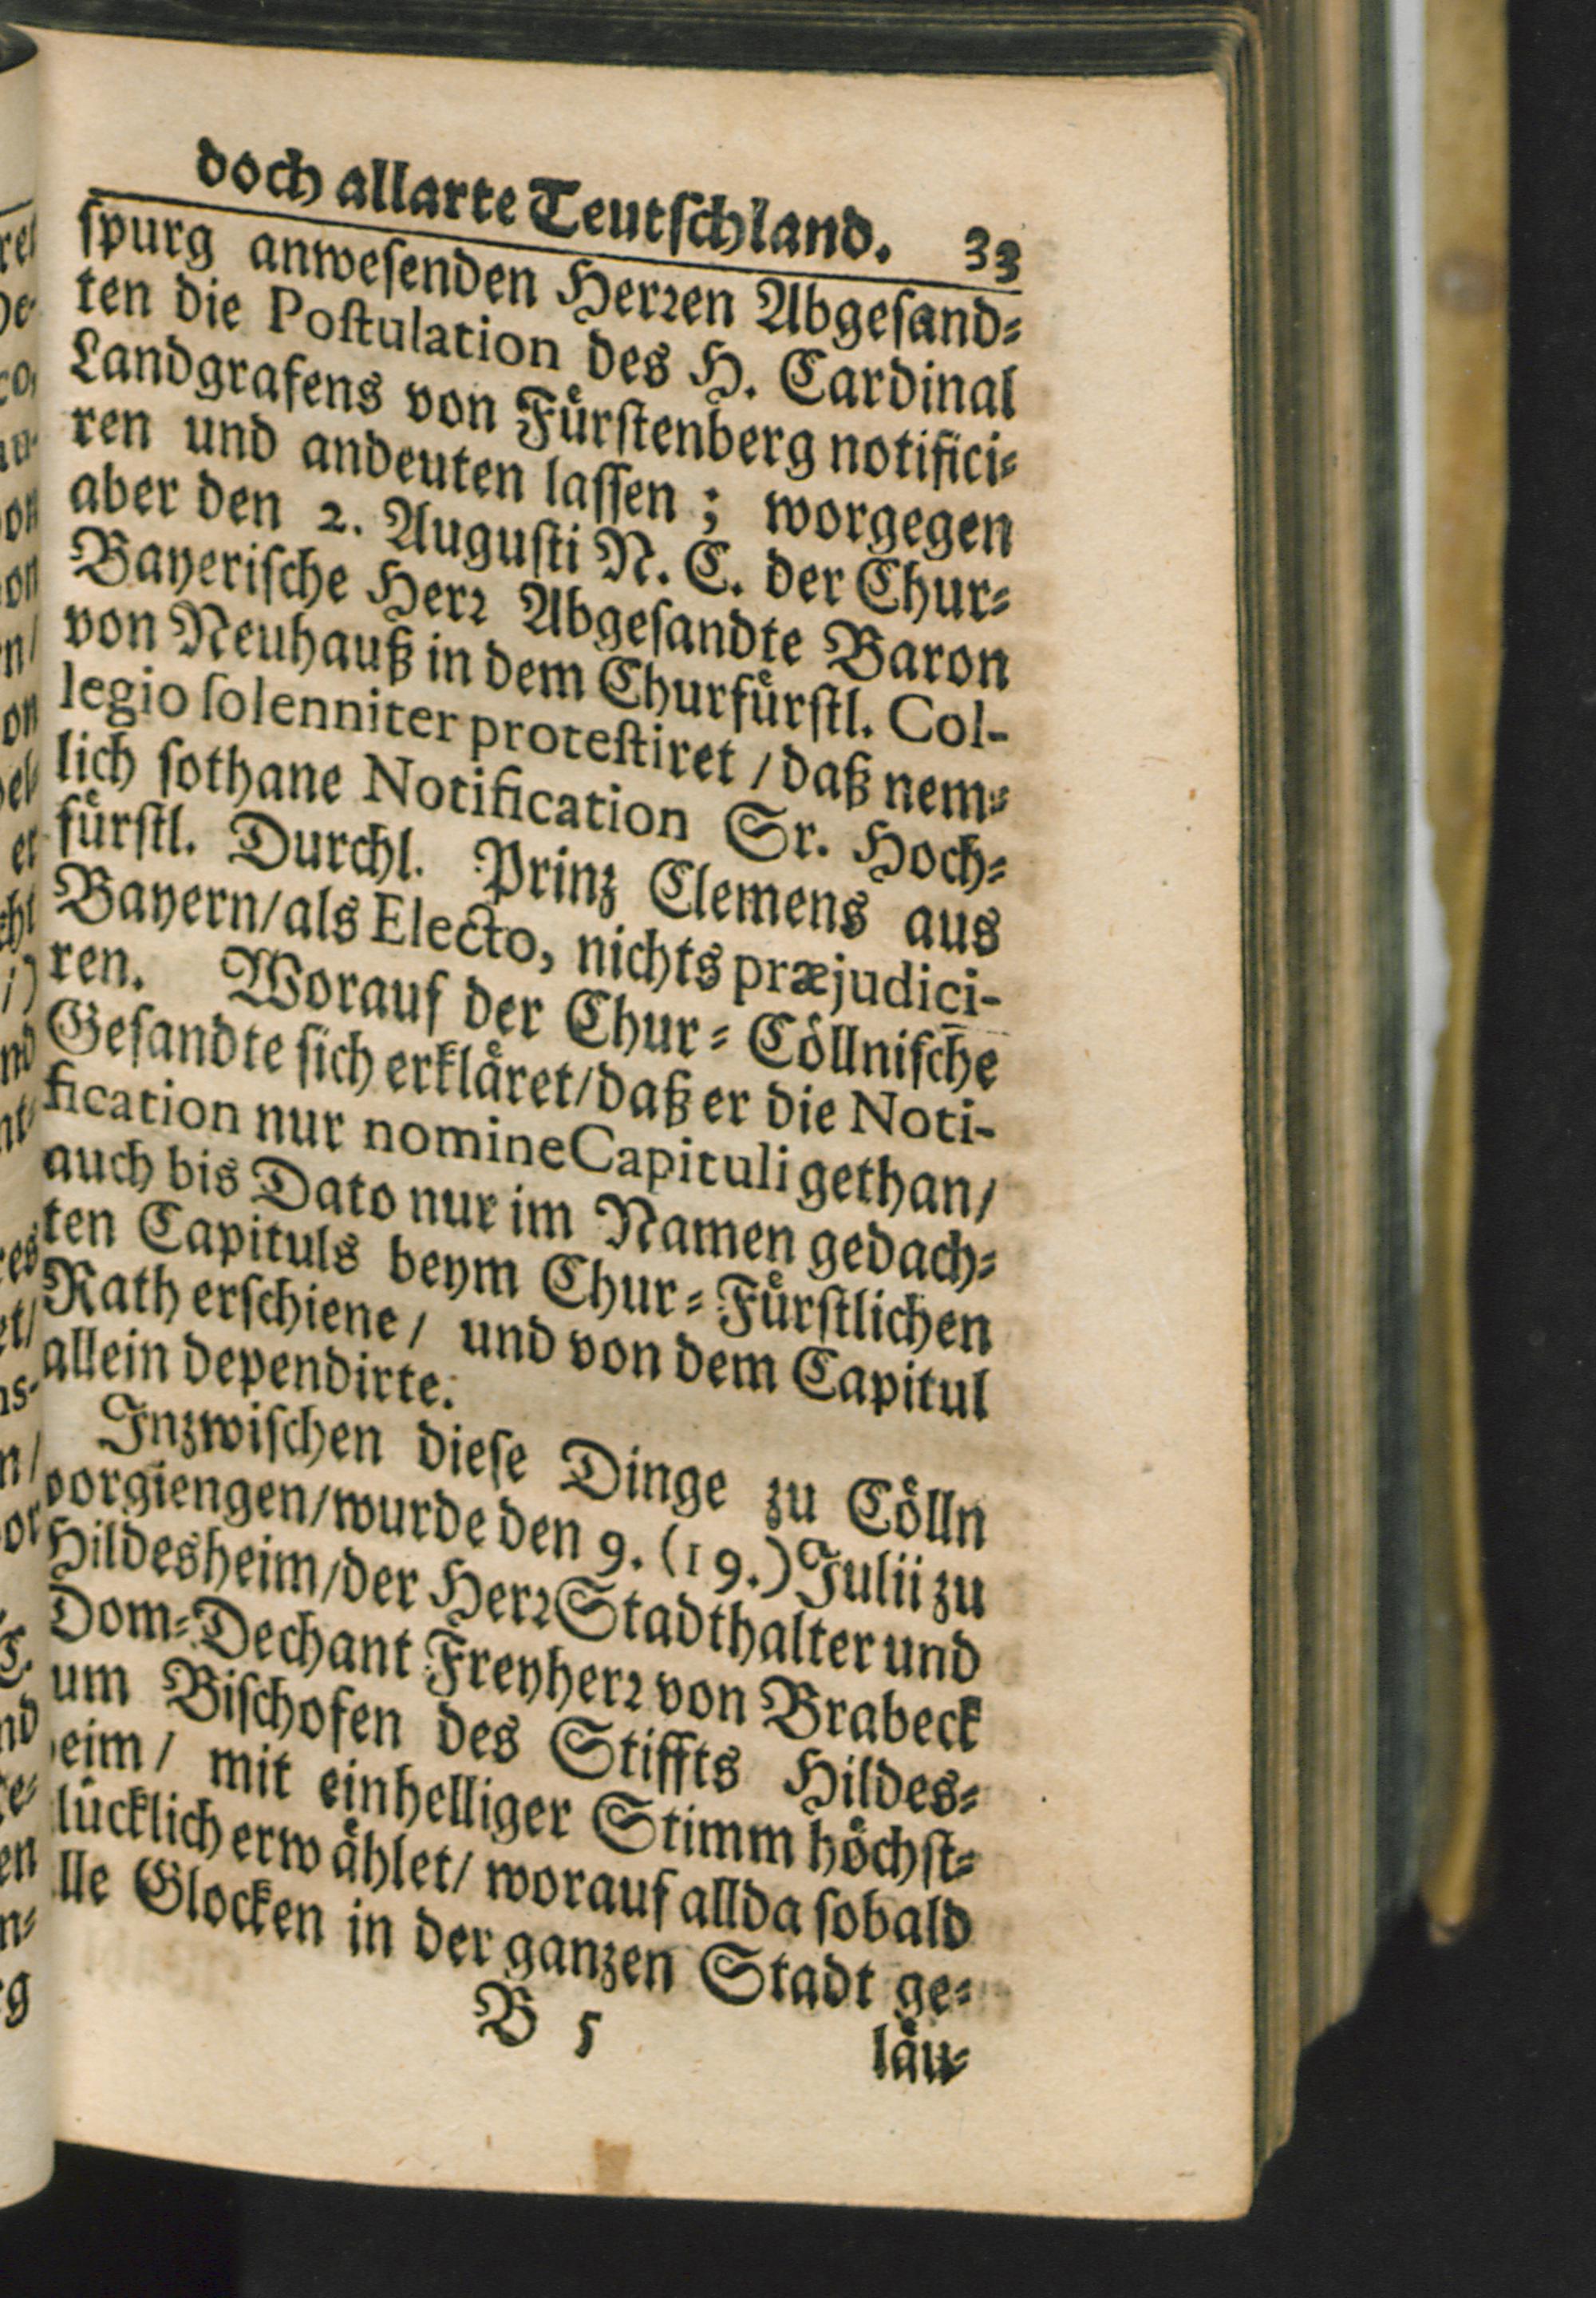 doch allarte Teutschland. 33
spurg anwesenden Herren Abgesand-
ten die Postulation des H. Cardinal
Landgrafens von Fürstenberg notifici-
ren und andeuten lassen; worgegen
aber den 2. Augusti N. C. der Chur-
Bayerische Herr Abgesandte Baron
von Neuhauß in dem Churfürstl. Col-
legio solenniter protestiret / daß nem-
lich sothane Notification Sr. Hoch-
fürstl. Durchl. Prinz Clemens aus
Bayern/als Electo, nichts præjudici-
ren. Worauf der Chur-Cöllnische
Gesandte sich erkläret/daß er die Noti-
fication nur nomine Capituli gethan/
auch bis Dato nur im Namen gedach-
ten Capituls beym Chur-Fürstlichen
Rath erschiene / und von dem Capitul
allein dependirte.
Inzwischen diese Dinge zu Cölln
vorgiengen/wurde den 9. (19.) Julii zu
Hildesheim/der Herr Stadthalter und
Dom-Dechant Freyherr von Brabeck
um Bischofen des Stiffts Hildes-
eim / mit einhelliger Stimm höchst-
lücklich erwählet/ worauf allda sobald
lle Glocken in der ganzen Stadt ge-
B 5 läu-